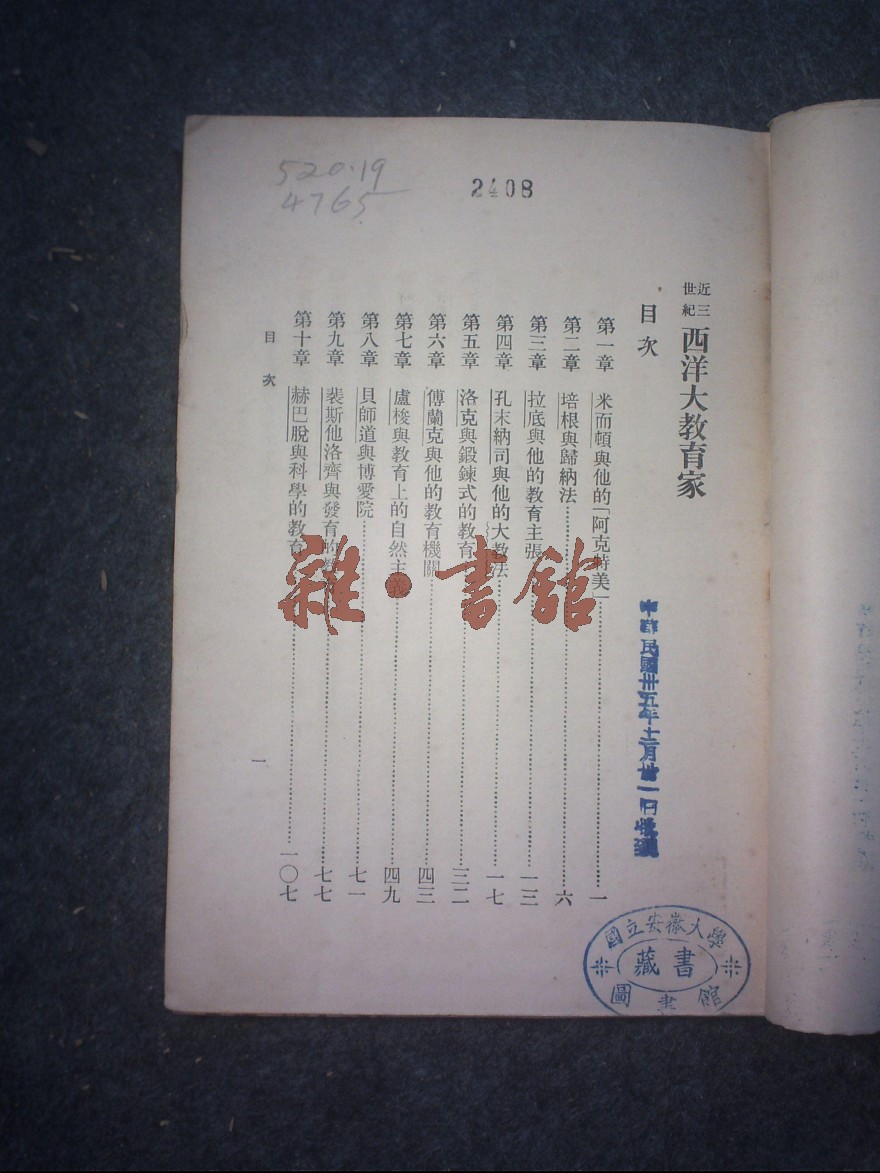 520.19
4765
2408
近三世紀西洋大教育家
目次
第一章 米而頓與他的「阿克特美」……一
第二章 培根與歸納法……六
第三章 拉底與他的教育主張……一三
第四章 孔末納司與他的大教法……一七
第五章 洛克與鍛鍊式的教育……三二
第六章 傅蘭克與他的教育機關……四三
第七章 盧梭與教育上的自然主義……四九
第八章 貝師道與博愛院……七一
第九章 裴斯他洛齊與發育的……七七
第十章 赫巴脫與科學的教育……一〇七
目次
一
中華民國卅五年十二月廿一日收到
國立安徽大學
藏書
圖書館
雜·書館